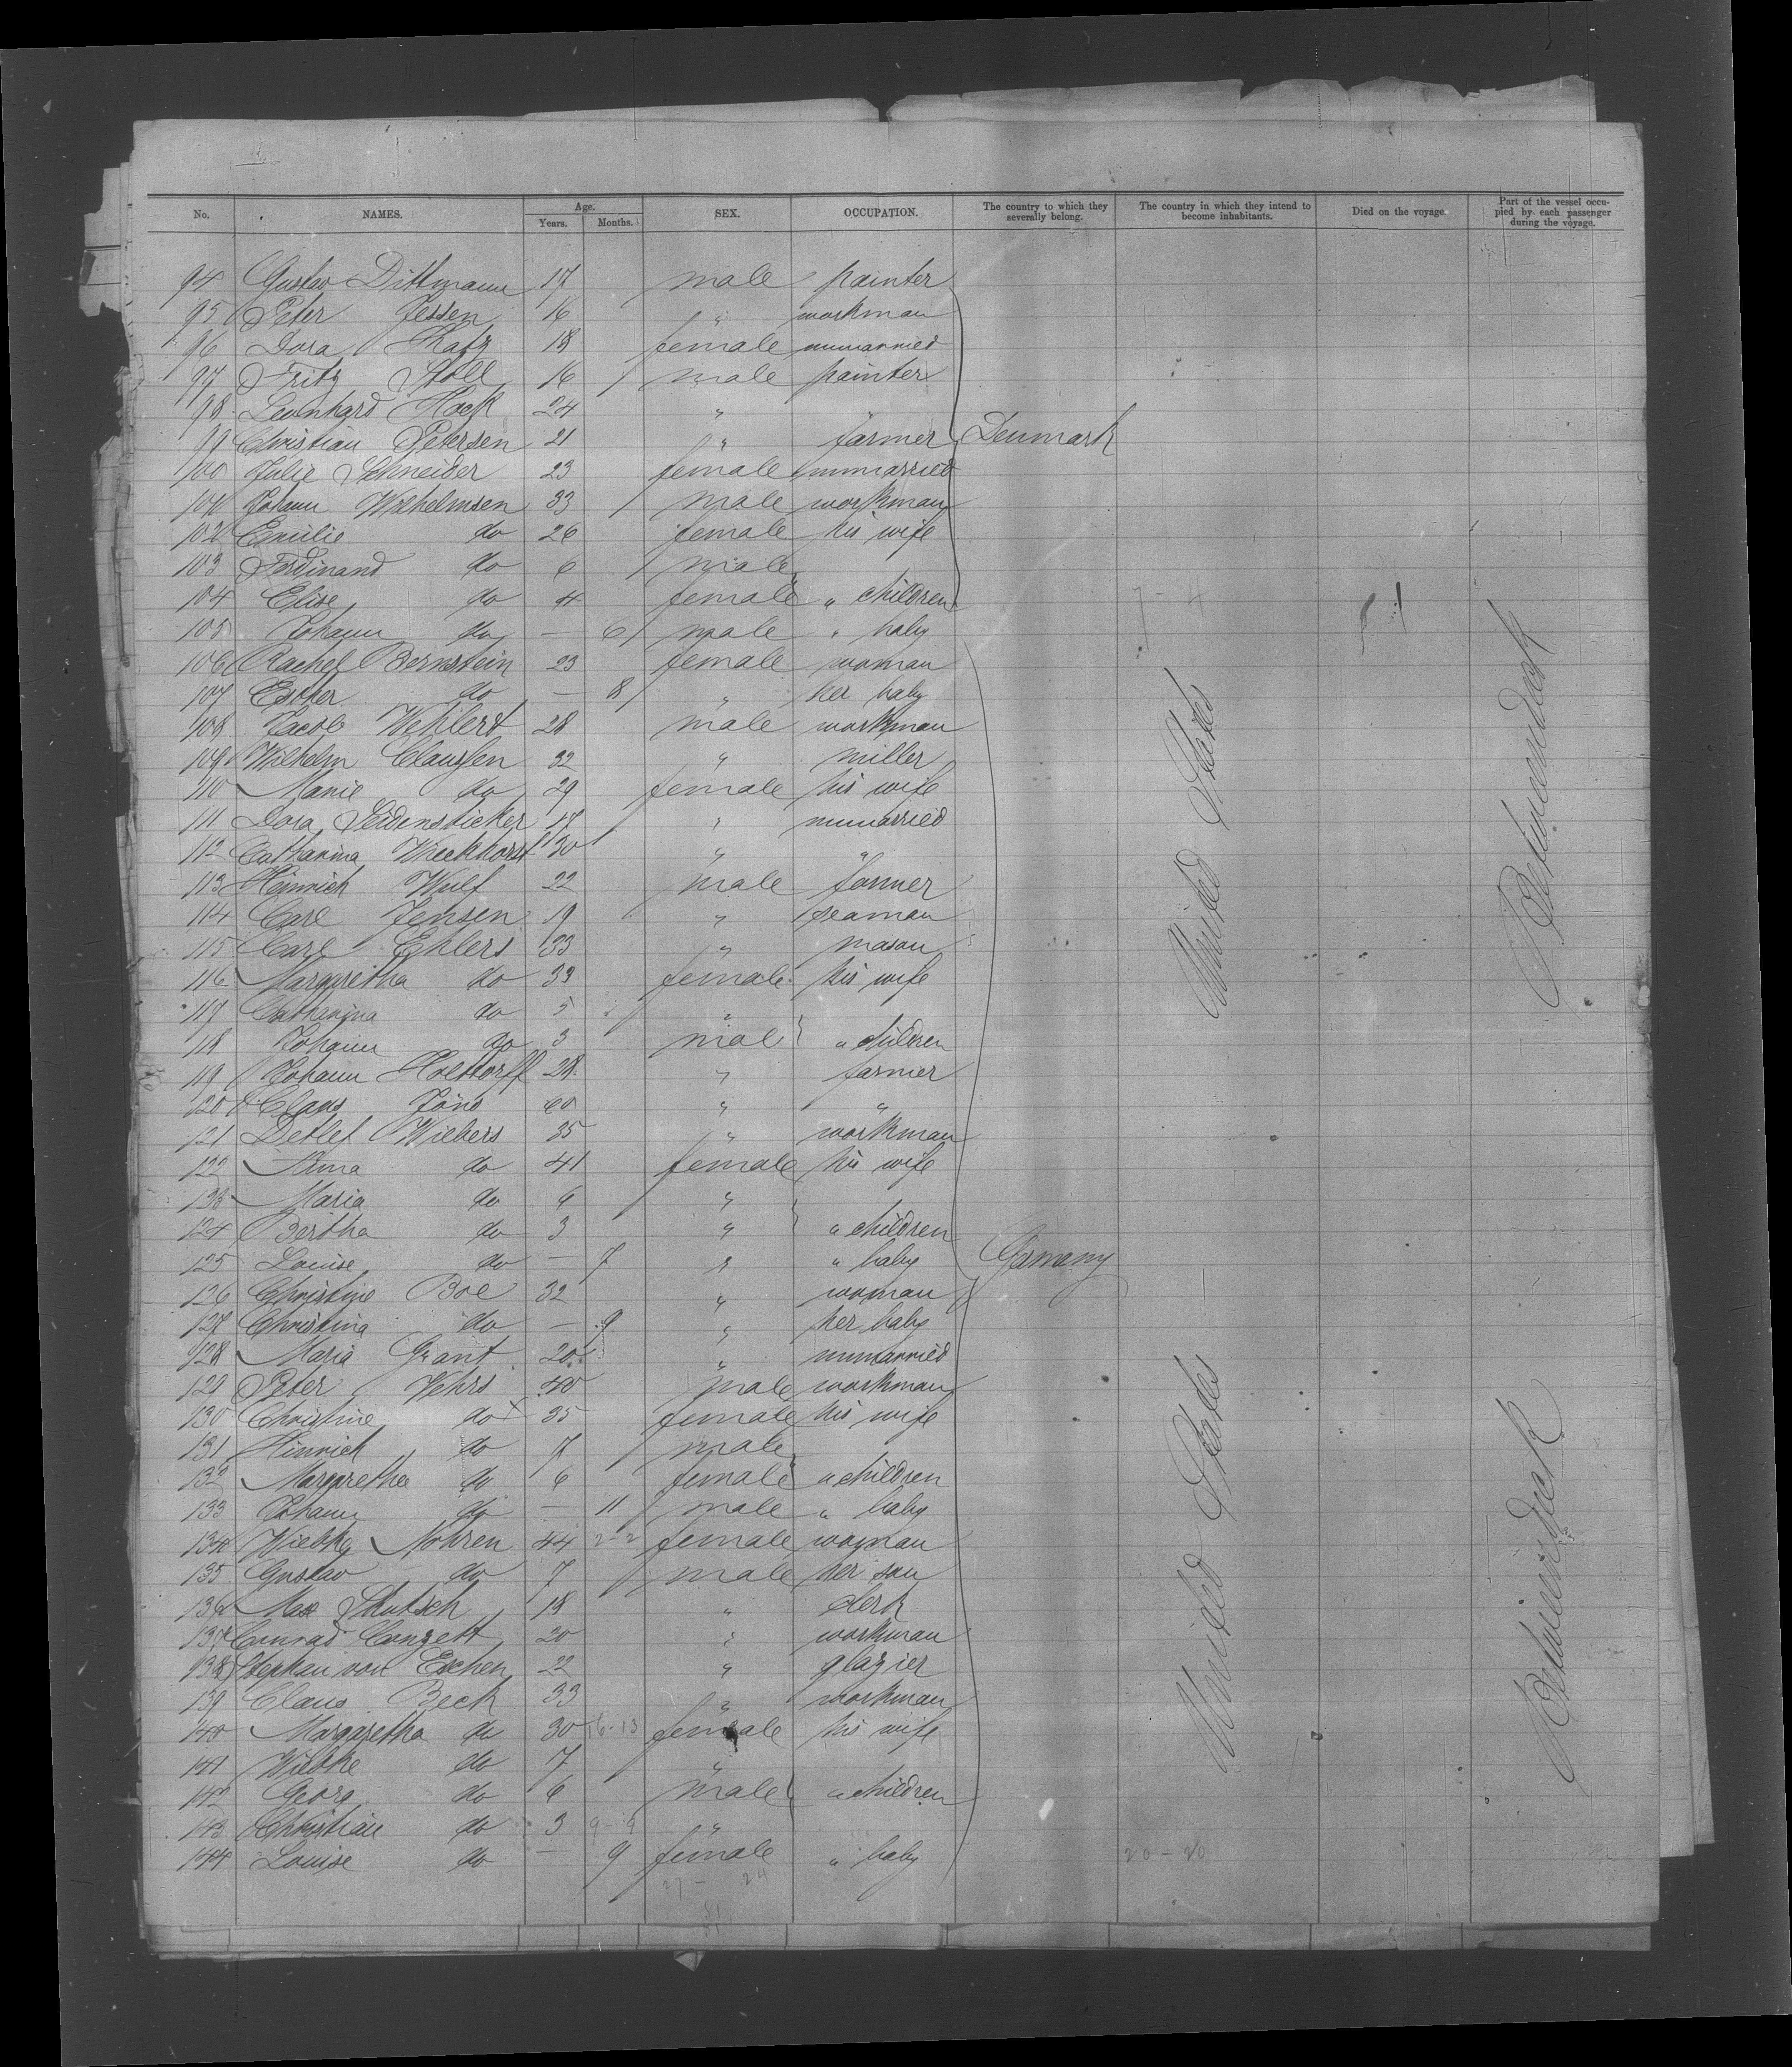 No. NAMES. Age. Years. Months. SEX. OCCUPATION. The country to which they severally belong. The country in which they intend to become inhabitants. Died on the voyage. Part of the vessel occupied by each passenger during the voyage.
94 Gustav Dittmann 17 male painter
95 Peter Jessen 16 " workman
96 Dora Katz 18 female unmarried
97 Fritz Stoll 16 male painter
98 Leonhard Hock 24 " "
99 Christian Petersen 21 " farmer Denmark
100 Julie Schneider 23 female unmarried
101 Johann Wilhelmsen 33 male workman
102 Emilie do 26 female his wife
103 Ferdinand do 6 male
104 Elise do 4 female " children
105 Johann do — 6 male " baby
106 Rachel Bernstein 23 female woman
107 Esther do — 8 " her baby
108 Jacob Wehlert 28 male workman
109 Wilhelm Claussen 32 " miller
110 Marie do 29 female his wife
111 Dora Seidensticker 17 " unmarried
112 Catharina Wieckhorst 30 " "
113 Heinrich Wulf 22 male farmer
114 Carl Jensen 19 " seaman
115 Carl Ehlers 33 " mason
116 Margaretha do 33 female his wife
117 Catharina do 5 "
118 Johann do 3 male " children
119 Johann Holtorff 28 " farmer
120 Claus Jöns 60 " "
121 Detlef Wiebers 35 " workman
122 Anna do 41 female his wife
123 Maria do 6 "
124 Bertha do 3 " " children
125 Louise do — 7 " " baby Germany
126 Christine Boe 32 " woman
127 Christina do — 9 " her baby
128 Maria Grant 20 " unmarried
129 Peter Vehrs 40 male workman
130 Christine do 35 female his wife
131 Hinrich do 7 male
132 Margaretha do 6 female " children
133 Johann do — 11 male " baby
134 Wiebke Nohren 44 2-2 female woman
135 Gustav do 7 male her son
136 Max 18 " clerk
137 Conrad Conzett 20 " workman
138 Stephan von Eschen 22 " glazier
139 Claus Beck 33 " workman
140 Margaretha do 30 16-13 female his wife
141 Wiebke do 7 "
142 Georg do 6 male " children
143 Christian do 3 9-9 "
144 Louise do — 9 female " baby
United States
United States
20-20
27 - 24